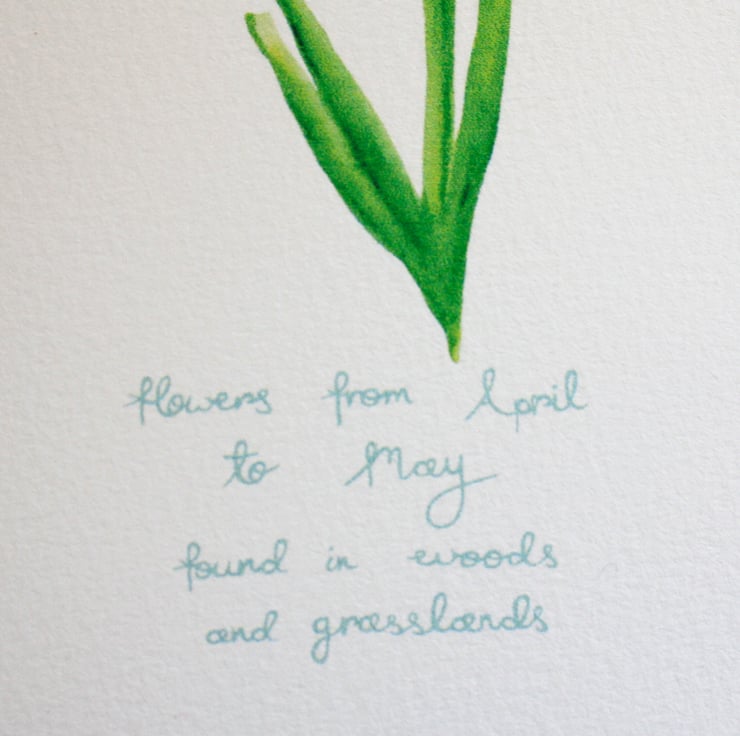 flowers from April
to May
found in woods
and grasslands